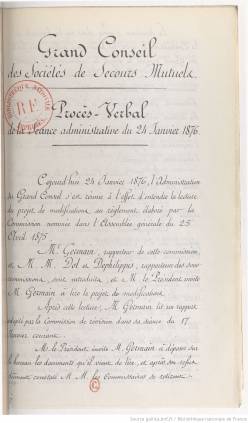 Grand Conseil
des Sociétés de Secours Mutuels
Procès-Verbal
de la Séance administrative du 24 Janvier 1876.
Cejourd'hui 24 Janvier 1876, l'Administration
du Grand Conseil s'est réunie à l'effet d'entendre la lecture
du projet de modifications au règlement, élaboré par la
Commission nommée dans l'Assemblée générale du 25
Avril 1875
Mr. Germain, rapporteur de cette commission,
et M. M. Dol et Dephilippis, rapporteurs des sous-
commissions, sont introduits, et M. le Président invite
M. Germain à lire le projet de modifications.
Après cette lecture, M. Germain lit un rapport
adopté par la Commission de révision dans sa séance du 17
Janvier courant.
M. le Président invite M. Germain à déposer sur
le bureau les documents qu'il vient de lire, et après son
constitué M. M. les Commissaires se retirent.
BIBLIOTHÈQUE NATIONALE
RF
Source gallica.bnf.fr / Bibliothèque nationale de France